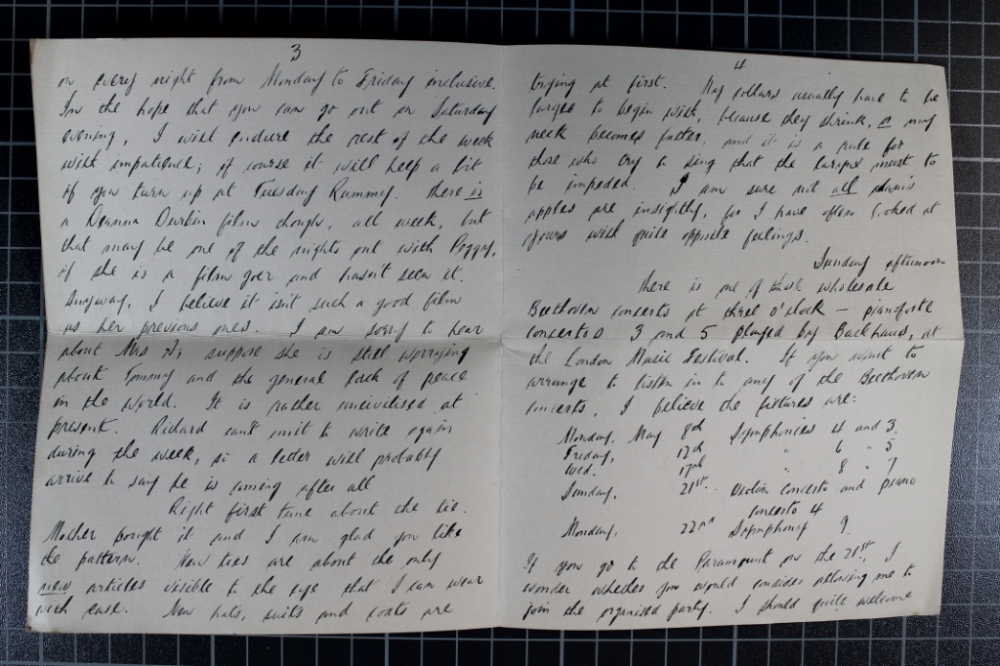 3
on every night from Monday to Friday inclusive.
In the hope that you can go out on Saturday
evening, I will endure the rest of the week
with impatience; of course it will help a bit
if you turn up at Tuesday Rummy. There is
a Deanna Durbin film though, all week, but
that may be one of the nights out with Peggy,
if she is a film goer and hasn't seen it.
Anyway, I believe it isn't such a good film
as her previous ones. I am sorry to hear
about Mrs A; suppose she is still worrying
about Tommy and the general lack of peace
in the World. It is rather uncivilised at
present. Richard can't wait to write again
during the week, so a letter will probably
arrive to say he is coming after all
Right first time about the tie.
Mother bought it and I am glad you like
the pattern. New ties are about the only
new articles visible to the eye that I can wear
with ease. New hats, suits and coats are
4
trying at first. My collars usually have to be
larger to begin with, because they shrink, or my
neck becomes fatter, and it is a rule for
those who try to sing that the larynx must to
be impeded. I am sure not all adam's
apples are unsightly, for I have often looked at
yours with quite opposite feelings.
Sunday afternoon
There is one of those wholesale
Beethoven concerts at three o'clock – pianoforte
concertos 3 and 5 played by Backhaus, at
the London Music Festival. If you want to
arrange to listen in to any of the Beethoven
concerts, I believe the fixtures are:
Monday, May 8th Symphonies 4 and 3.
Friday, 12th " 6 " 5
Wed. 17th " 8 " 7
Sunday, 21st. Violin concerto and piano
concerto 4
Monday, 22nd Symphony 9.
If you go to the Paramount on the 21st, I
wonder whether you would consider allowing me to
join the organised party. I should quite welcome